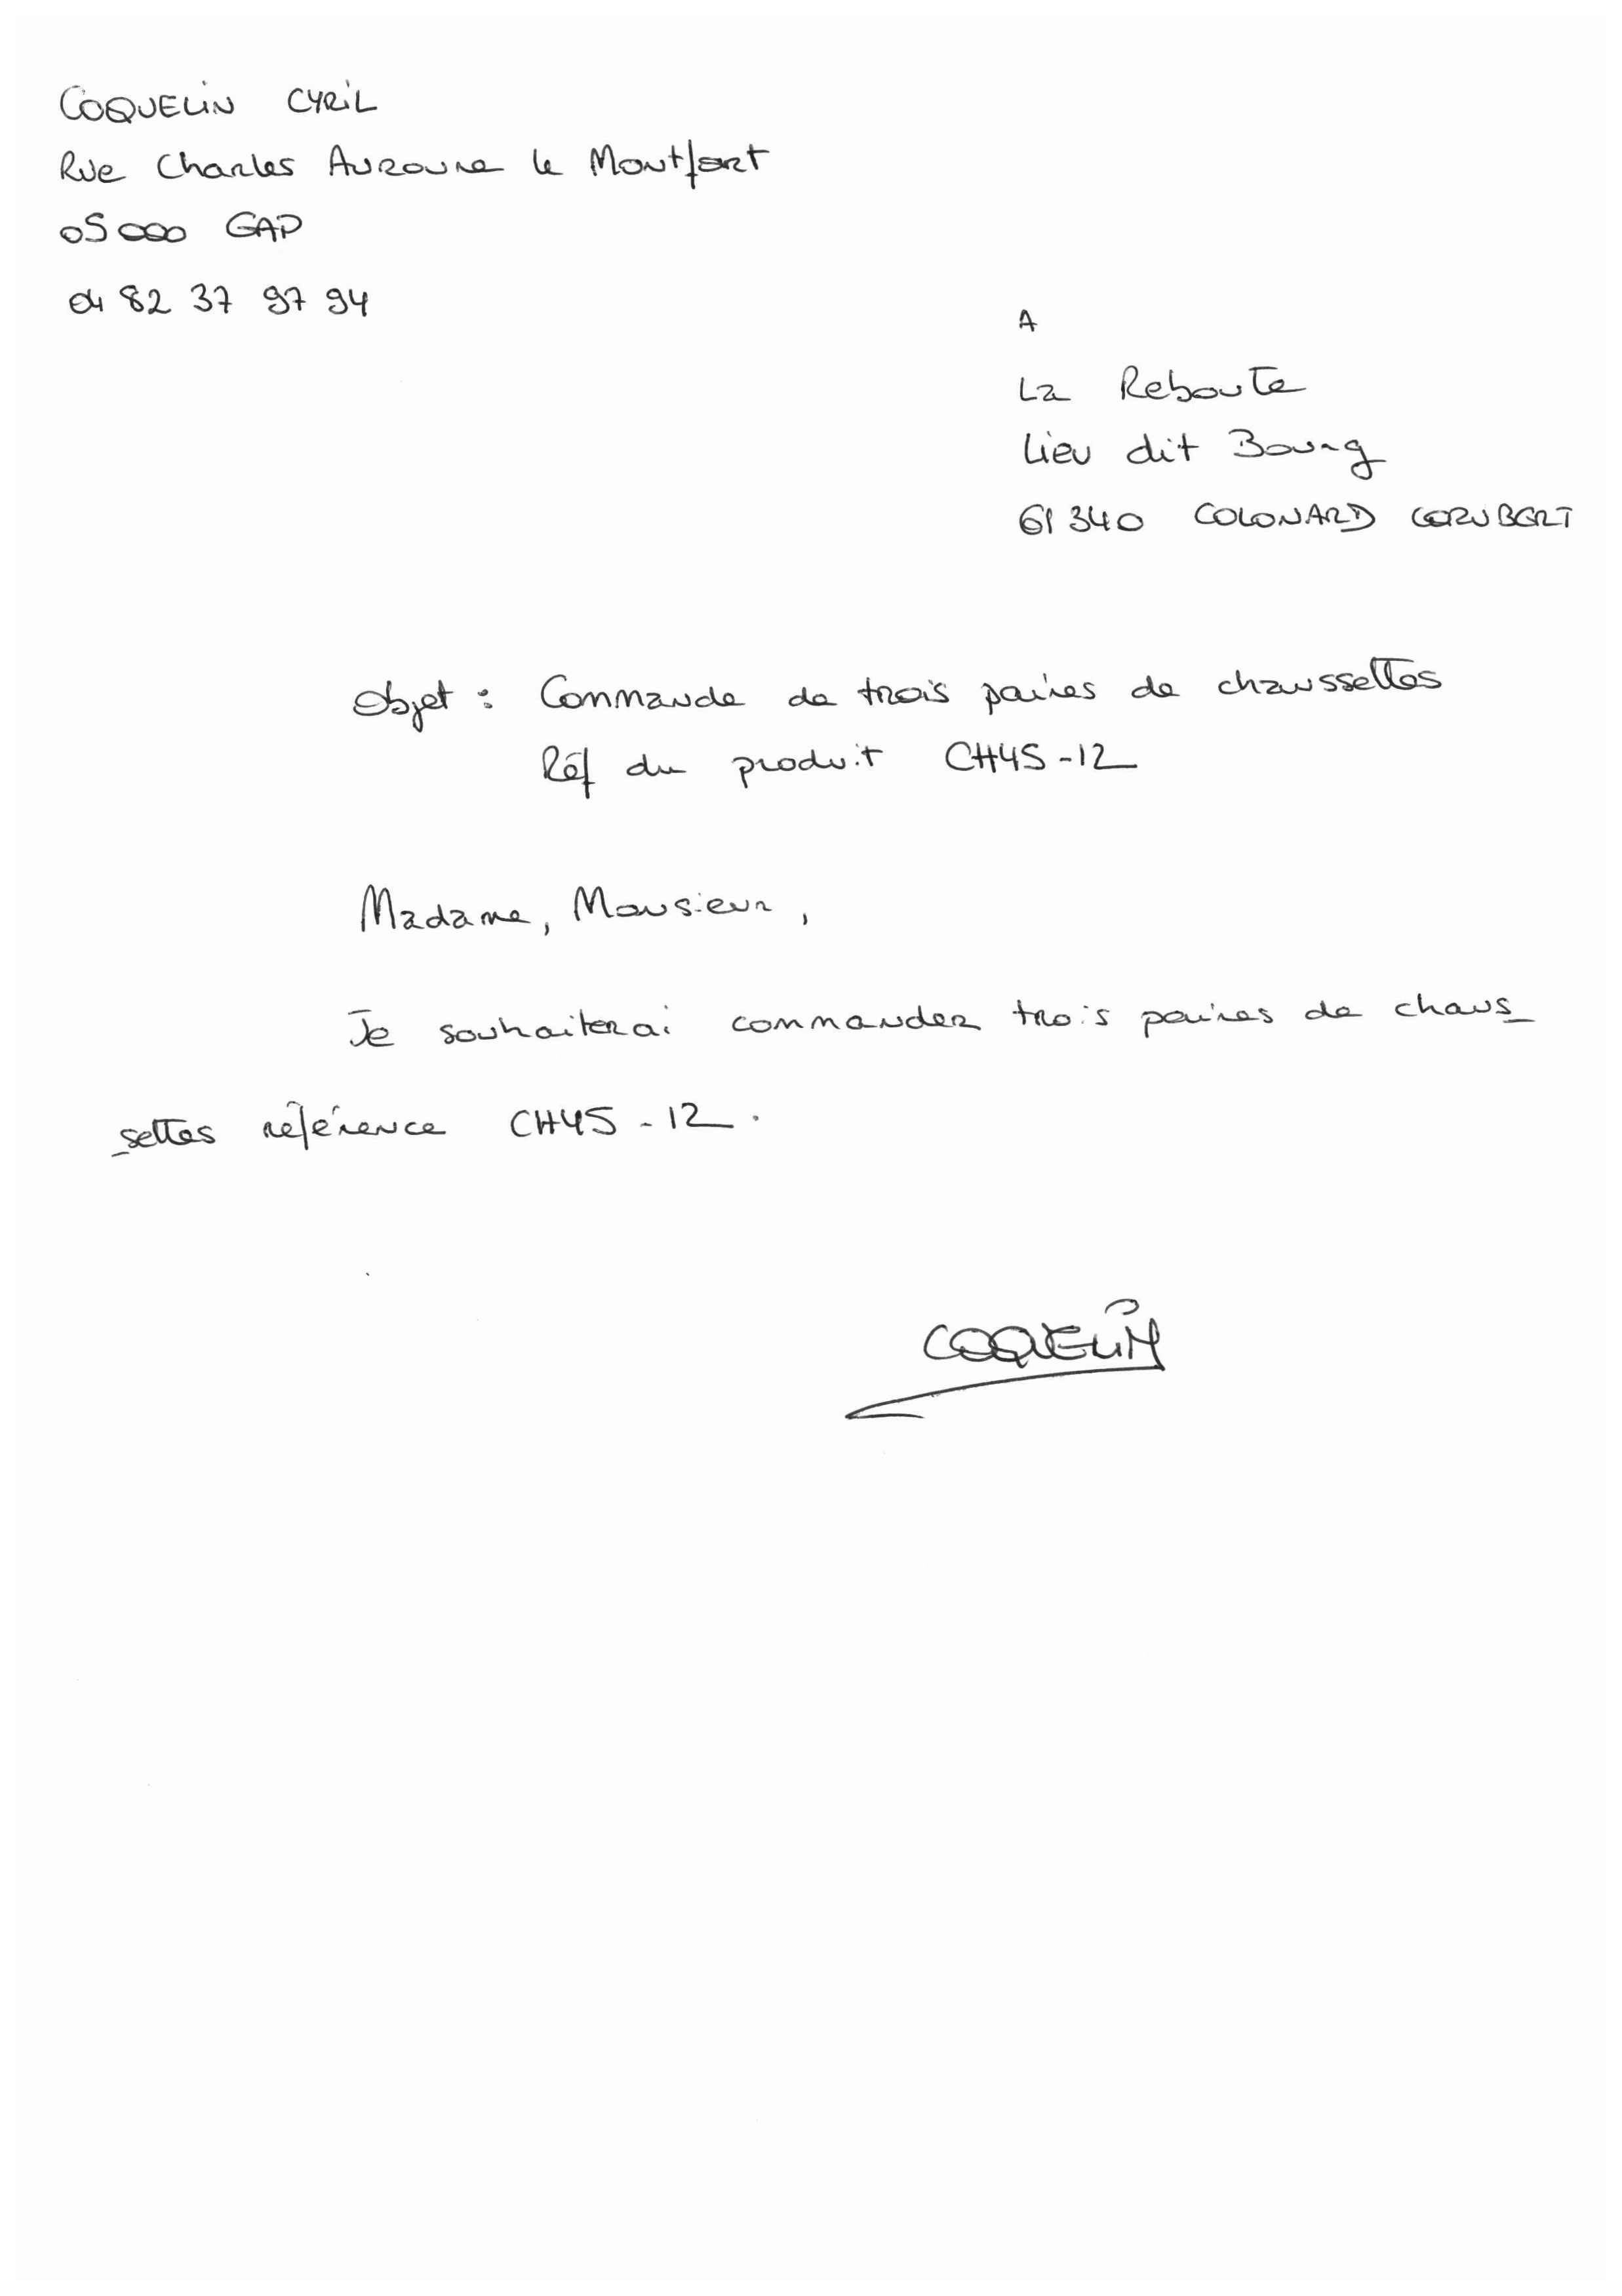 COQUELIN CYRIL
Rue Charles Auroune le Montfort
05000 GAP
04 82 37 97 94
A
La Reboute
Lieu dit Bourg
61340 COLONARD CORUBERT
Objet : Commande de trois paires de chaussettes
Réf du produit CH45-12
Madame, Monsieur,
Je souhaiterai commander trois paires de chaus_
_settes référence CH45-12.
COQUELIN